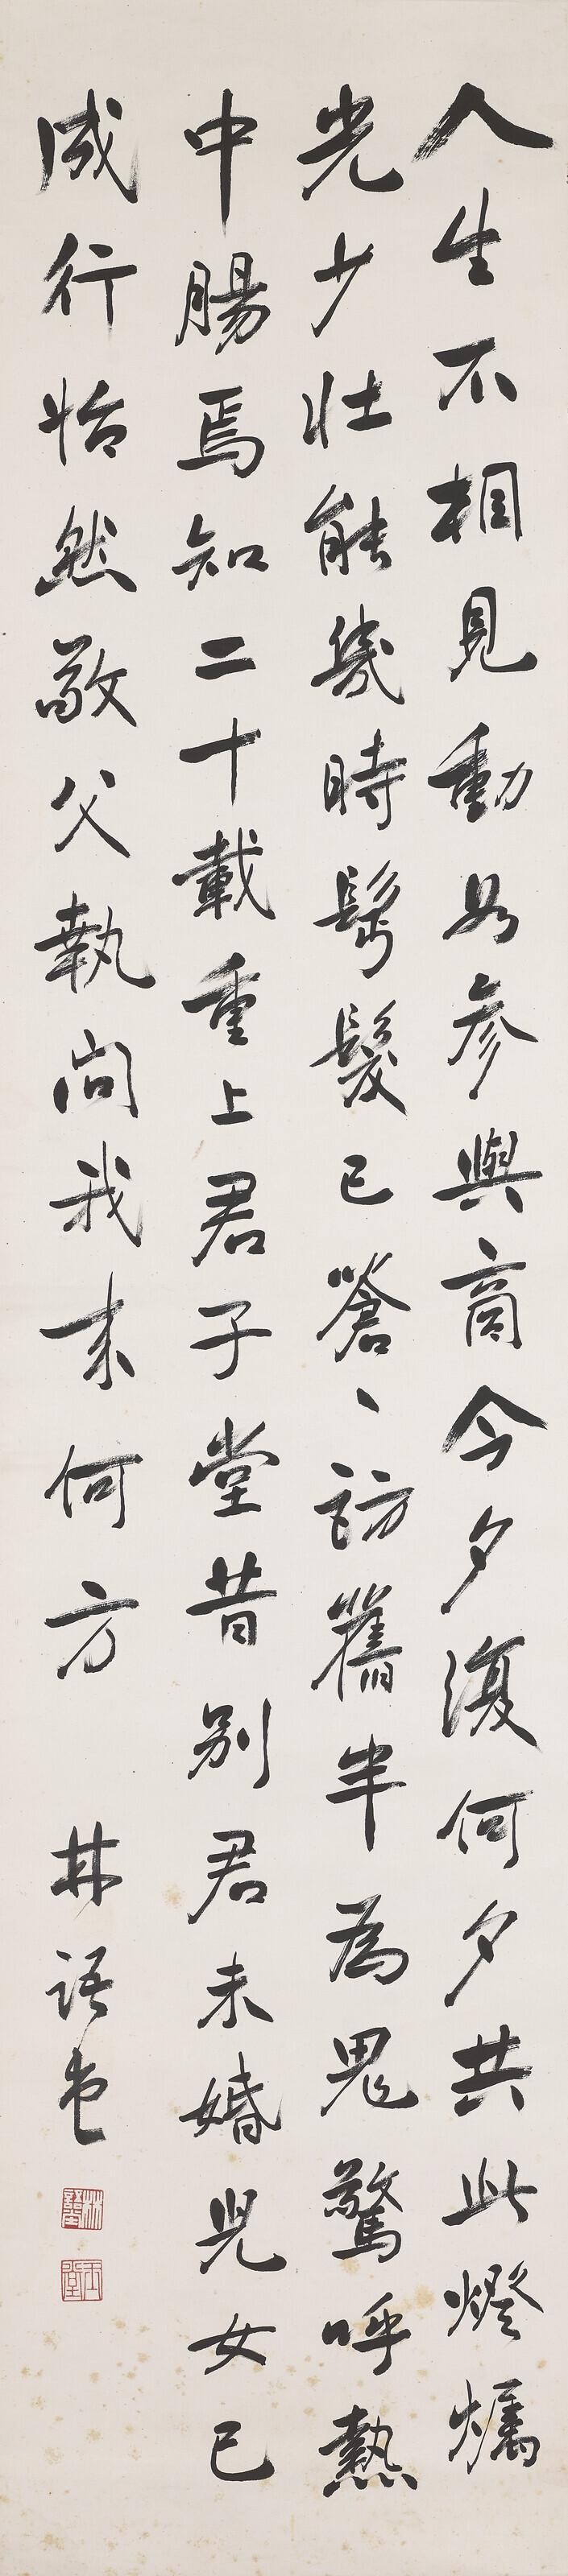 人生不相見動如參與商今夕復何夕共此燈燭
光少壯能幾時鬢髮已蒼、訪舊半為鬼驚呼熱
中腸焉知二十載重上君子堂昔別君未婚兒女已
成行怡然敬父執問我來何方
林語堂
林語堂
玉堂